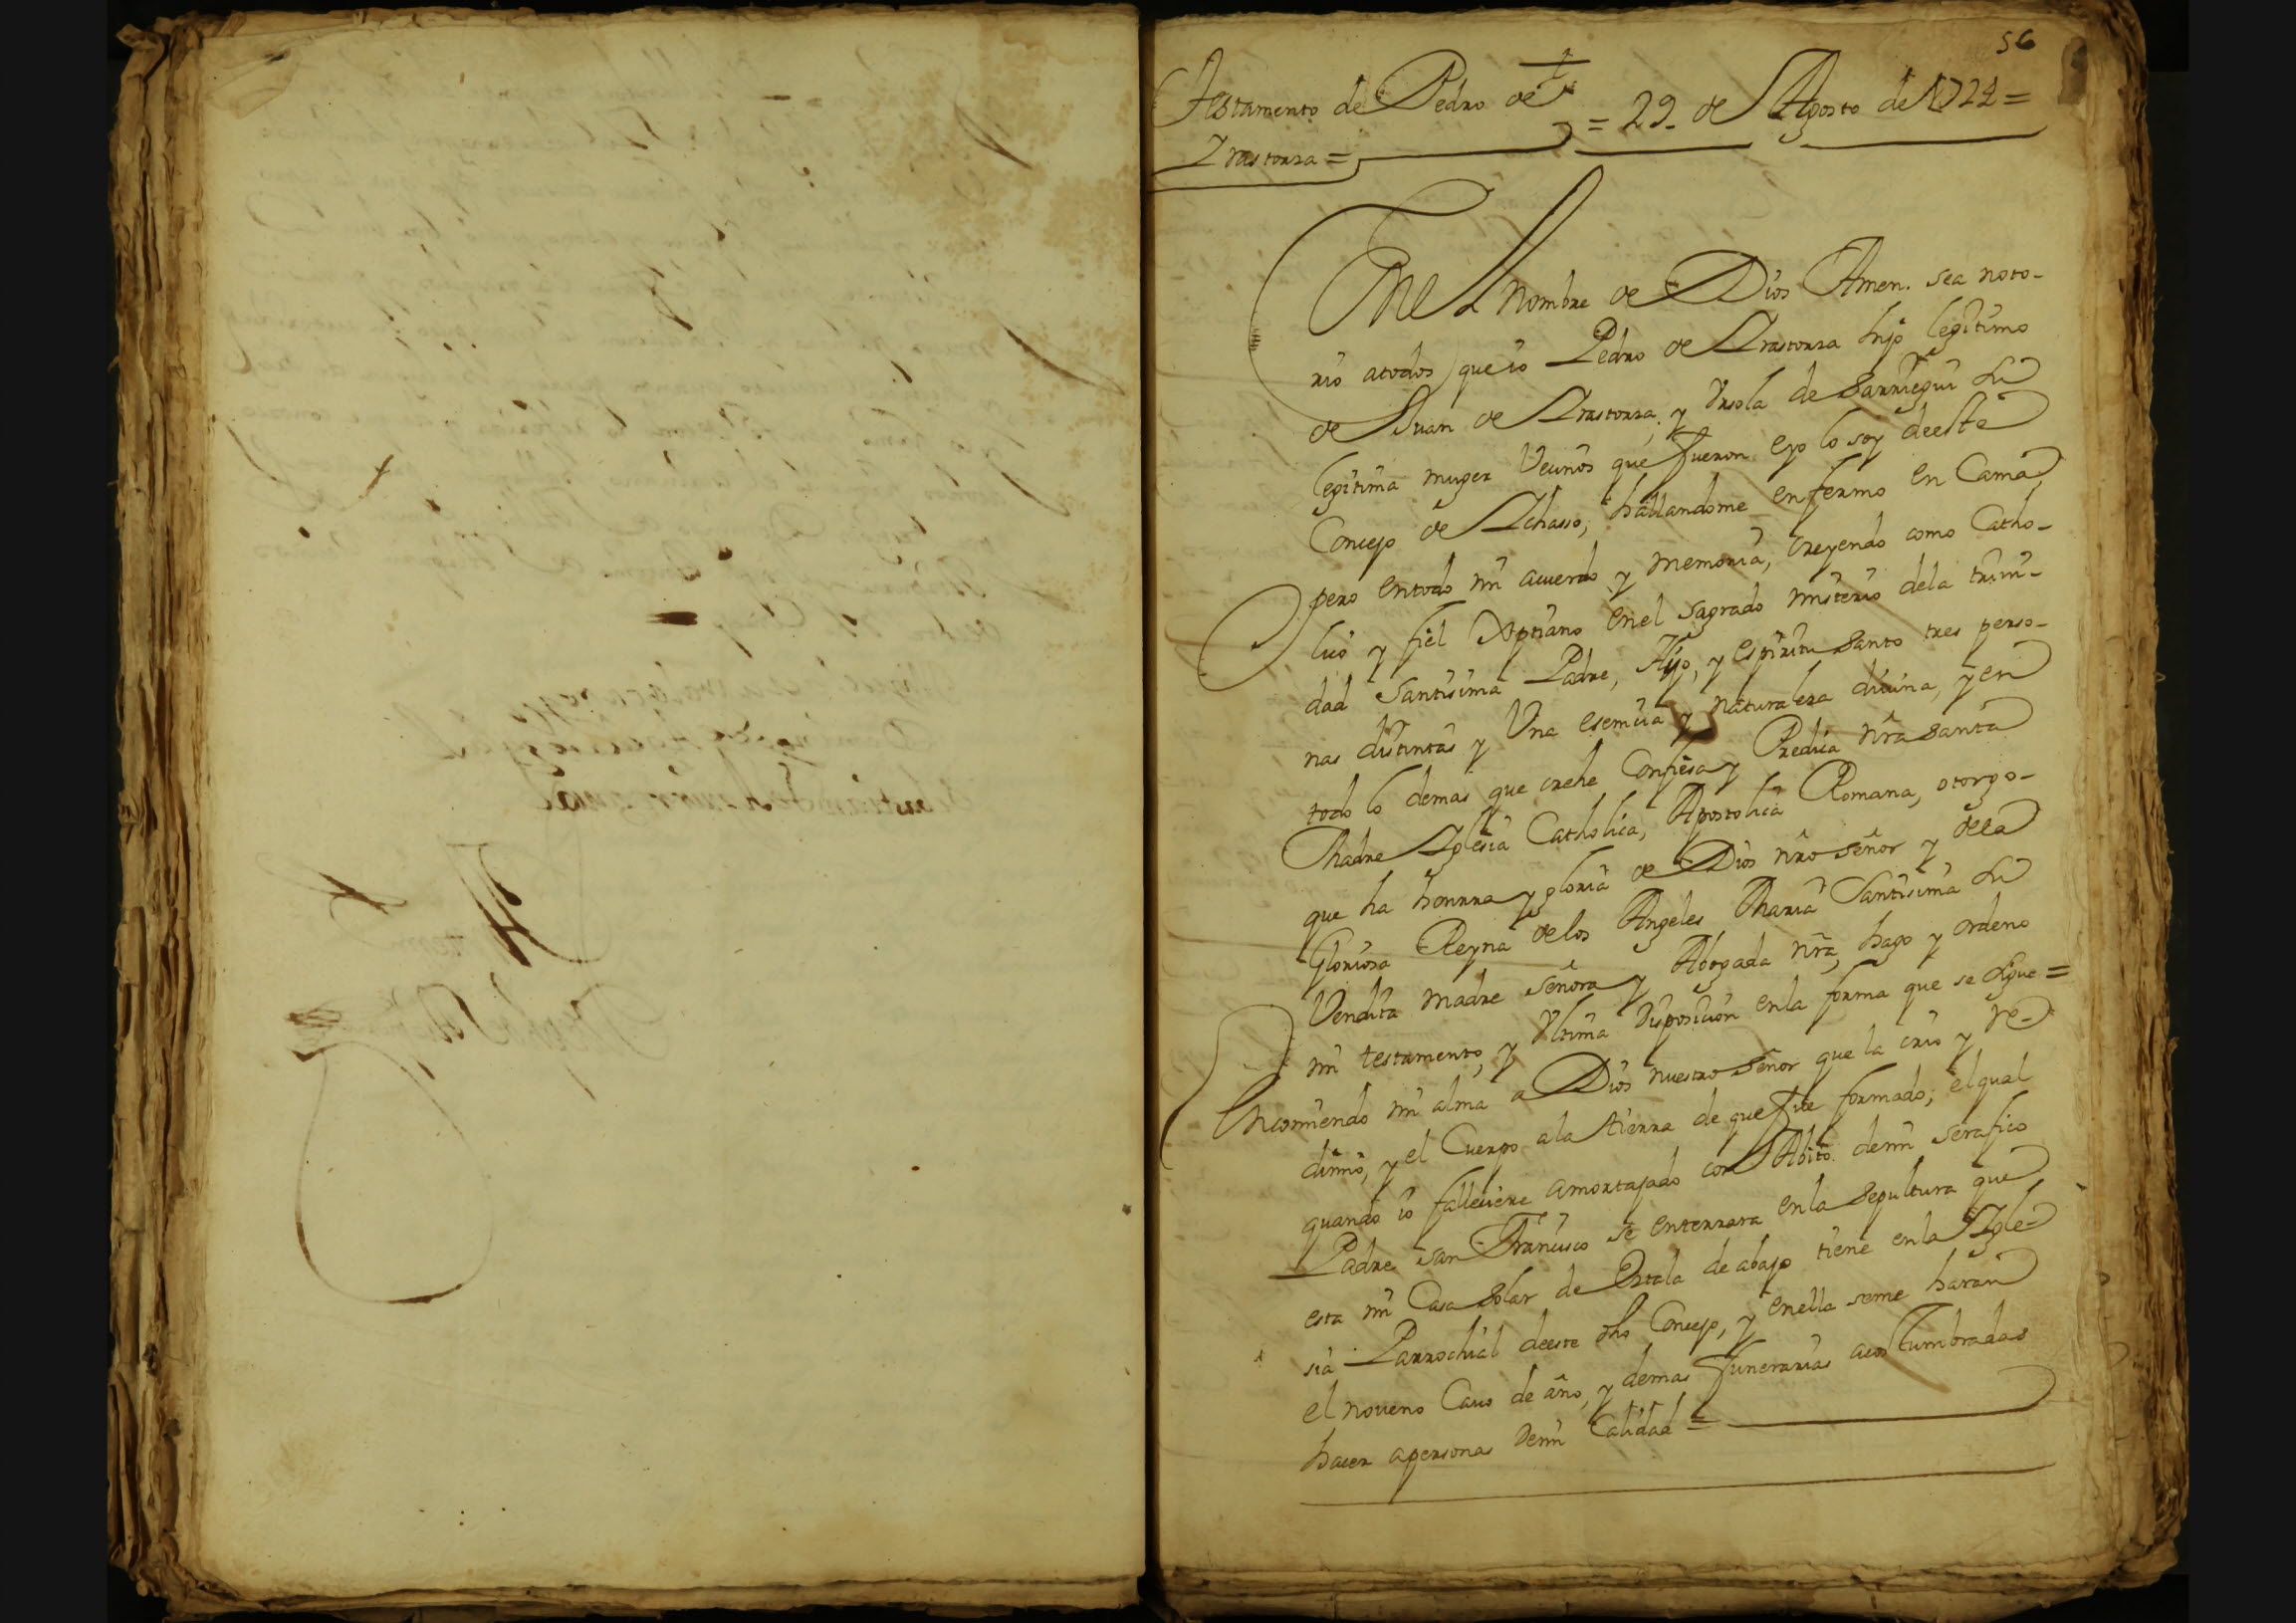 56
Testamento de Pedro de
Irastorza =
= 29 de Agosto de 1724 =
En el Nombre de Dios Amen. sea noto-
rio atodos que io Pedro de Irastorza hijo legitimo
de Juan de Irastorza, y Ursola de Sarriegui su
legitima muger Vecinos que fueron eyo lo soy deeste
Concejo de Ichasso, hallandome enfermo en Cama
pero entodo mi acuerdo y memoria, creyendo como Catho-
lico y fiel Xptiano enel sagrado misterio dela trini-
dad Santisima Padre, Hijo, y espiritu Santo tres perso-
nas distintas y Una esemcia y naturaleza divina, y en
todo lo demas que crehe Confiesa y Predica nra Santa
Madre Iglesia Catholica, Apostolica Romana, otorgo-
que ha honrra y gloria de Dios nro señor y dela
Gloriosa Reyna delos Angeles Maria Santisima su
Vendita madre señora y Abogada nra, hago y ordeno
mi testamento, y Ultima Disposicion enla forma que se sigue =
Encomiendo mi alma a Dios nuestro Señor que la crio y re-
dimio, y el Cuerpo ala tierra de que fue formado; el qual
quando io falleciere amortajado con Abito demi serafico
Padre san Francisco se enterrara enla Sepultura que
esta mi Casa Solar de Estala de abajo tiene enla Igle-
sia Parrochial deeste dho Concejo, y enella seme haran
el noveno Cavo de año, y demas funerarias acostumbradas
hacer apersonas Demi Calidad =